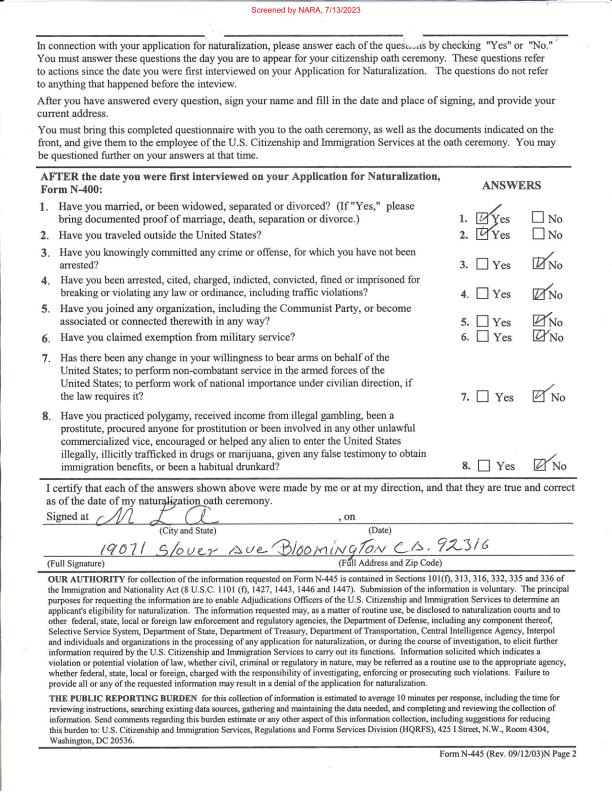 Screened by NARA, 7/13/2023
In connection with your application for naturalization, please answer each of the questions by checking "Yes" or "No."
You must answer these questions the day you are to appear for your citizenship oath ceremony. These questions refer
to actions since the date you were first interviewed on your Application for Naturalization. The questions do not refer
to anything that happened before the inteview.
After you have answered every question, sign your name and fill in the date and place of signing, and provide your
current address.
You must bring this completed questionnaire with you to the oath ceremony, as well as the documents indicated on the
front, and give them to the employee of the U.S. Citizenship and Immigration Services at the oath ceremony. You may
be questioned further on your answers at that time.
AFTER the date you were first interviewed on your Application for Naturalization,
Form N-400:
ANSWERS
1. Have you married, or been widowed, separated or divorced? (If "Yes," please
bring documented proof of marriage, death, separation or divorce.) 1. Yes No
2. Have you traveled outside the United States? 2. Yes No
3. Have you knowingly committed any crime or offense, for which you have not been
arrested? 3. Yes No
4. Have you been arrested, cited, charged, indicted, convicted, fined or imprisoned for
breaking or violating any law or ordinance, including traffic violations? 4. Yes No
5. Have you joined any organization, including the Communist Party, or become
associated or connected therewith in any way? 5. Yes No
6. Have you claimed exemption from military service? 6. Yes No
7. Has there been any change in your willingness to bear arms on behalf of the
United States; to perform non-combatant service in the armed forces of the
United States; to perform work of national importance under civilian direction, if
the law requires it? 7. Yes No
8. Have you practiced polygamy, received income from illegal gambling, been a
prostitute, procured anyone for prostitution or been involved in any other unlawful
commercialized vice, encouraged or helped any alien to enter the United States
illegally, illicitly trafficked in drugs or marijuana, given any false testimony to obtain
immigration benefits, or been a habitual drunkard? 8. Yes No
I certify that each of the answers shown above were made by me or at my direction, and that they are true and correct
as of the date of my naturalization oath ceremony.
Signed at M L A , on
(City and State) (Date)
19071 Slover Ave Bloomington CA. 92316
(Full Signature) (Full Address and Zip Code)
OUR AUTHORITY for collection of the information requested on Form N-445 is contained in Sections 101(f), 313, 316, 332, 335 and 336 of
the Immigration and Nationality Act (8 U.S.C. 1101 (f), 1427, 1443, 1446 and 1447). Submission of the information is voluntary. The principal
purposes for requesting the information are to enable Adjudications Officers of the U.S. Citizenship and Immigration Services to determine an
applicant's eligibility for naturalization. The information requested may, as a matter of routine use, be disclosed to naturalization courts and to
other federal, state, local or foreign law enforcement and regulatory agencies, the Department of Defense, including any component thereof,
Selective Service System, Department of State, Department of Treasury, Department of Transportation, Central Intelligence Agency, Interpol
and individuals and organizations in the processing of any application for naturalization, or during the course of investigation, to elicit further
information required by the U.S. Citizenship and Immigration Services to carry out its functions. Information solicited which indicates a
violation or potential violation of law, whether civil, criminal or regulatory in nature, may be referred as a routine use to the appropriate agency,
whether federal, state, local or foreign, charged with the responsibility of investigating, enforcing or prosecuting such violations. Failure to
provide all or any of the requested information may result in a denial of the application for naturalization.
THE PUBLIC REPORTING BURDEN for this collection of information is estimated to average 10 minutes per response, including the time for
reviewing instructions, searching existing data sources, gathering and maintaining the data needed, and completing and reviewing the collection of
information. Send comments regarding this burden estimate or any other aspect of this information collection, including suggestions for reducing
this burden to: U.S. Citizenship and Immigration Services, Regulations and Forms Services Division (HQRFS), 425 I Street, N.W., Room 4304,
Washington, DC 20536.
Form N-445 (Rev. 09/12/03)N Page 2